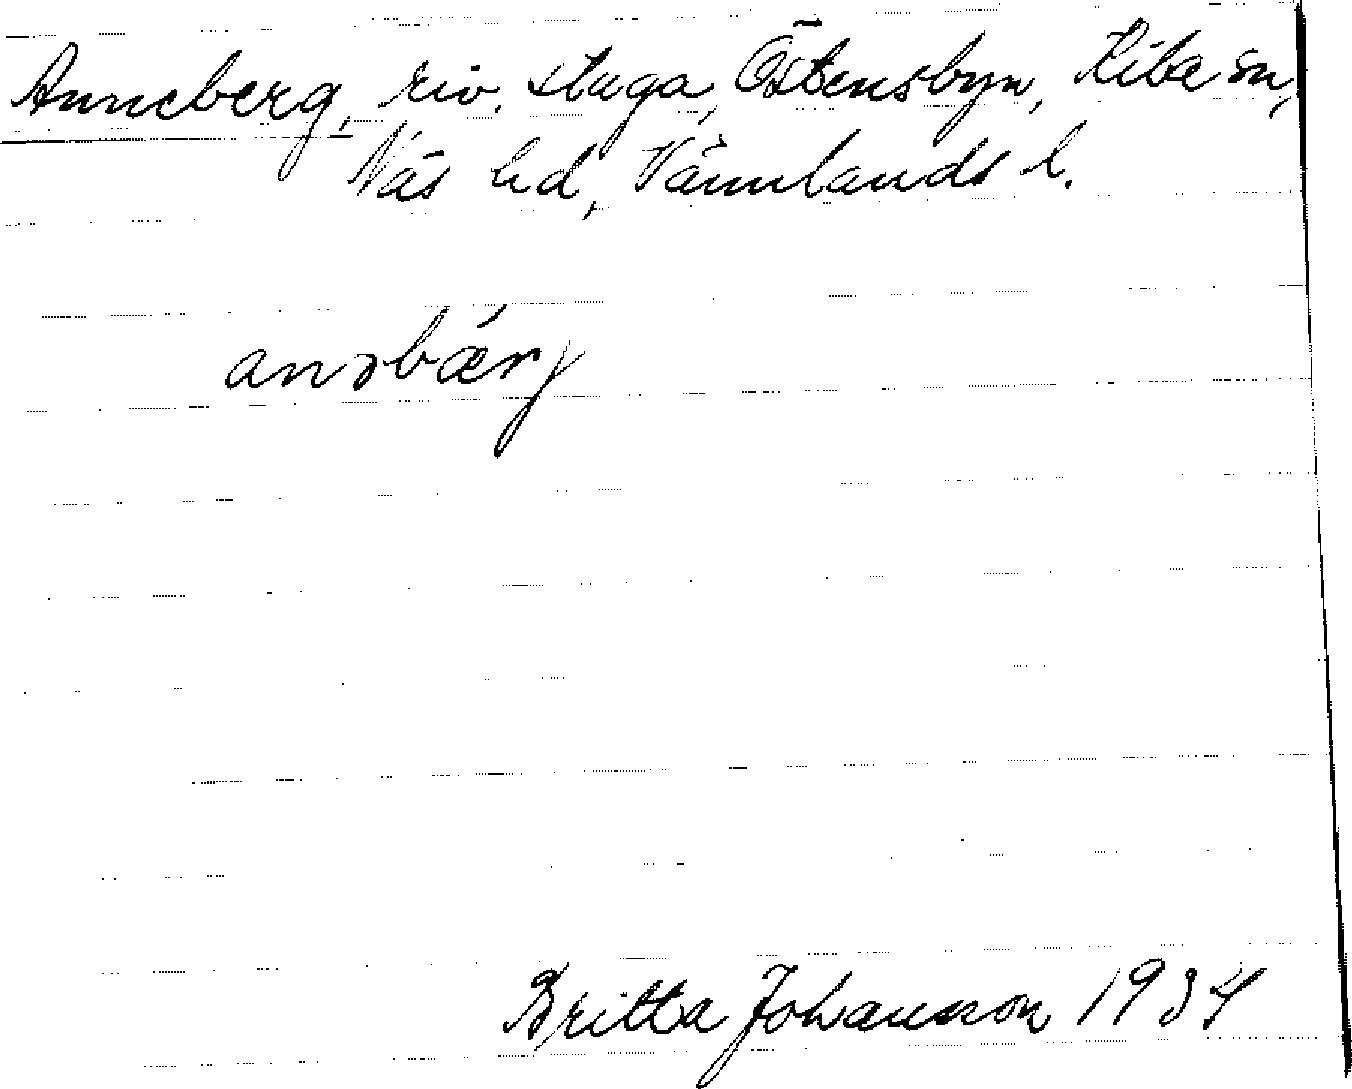 Anneberg, riv. stuga, Östensbyn, Kila sn,
Näs hd, Värmlands l.
anəbǽrj
Britta Johansson 1934